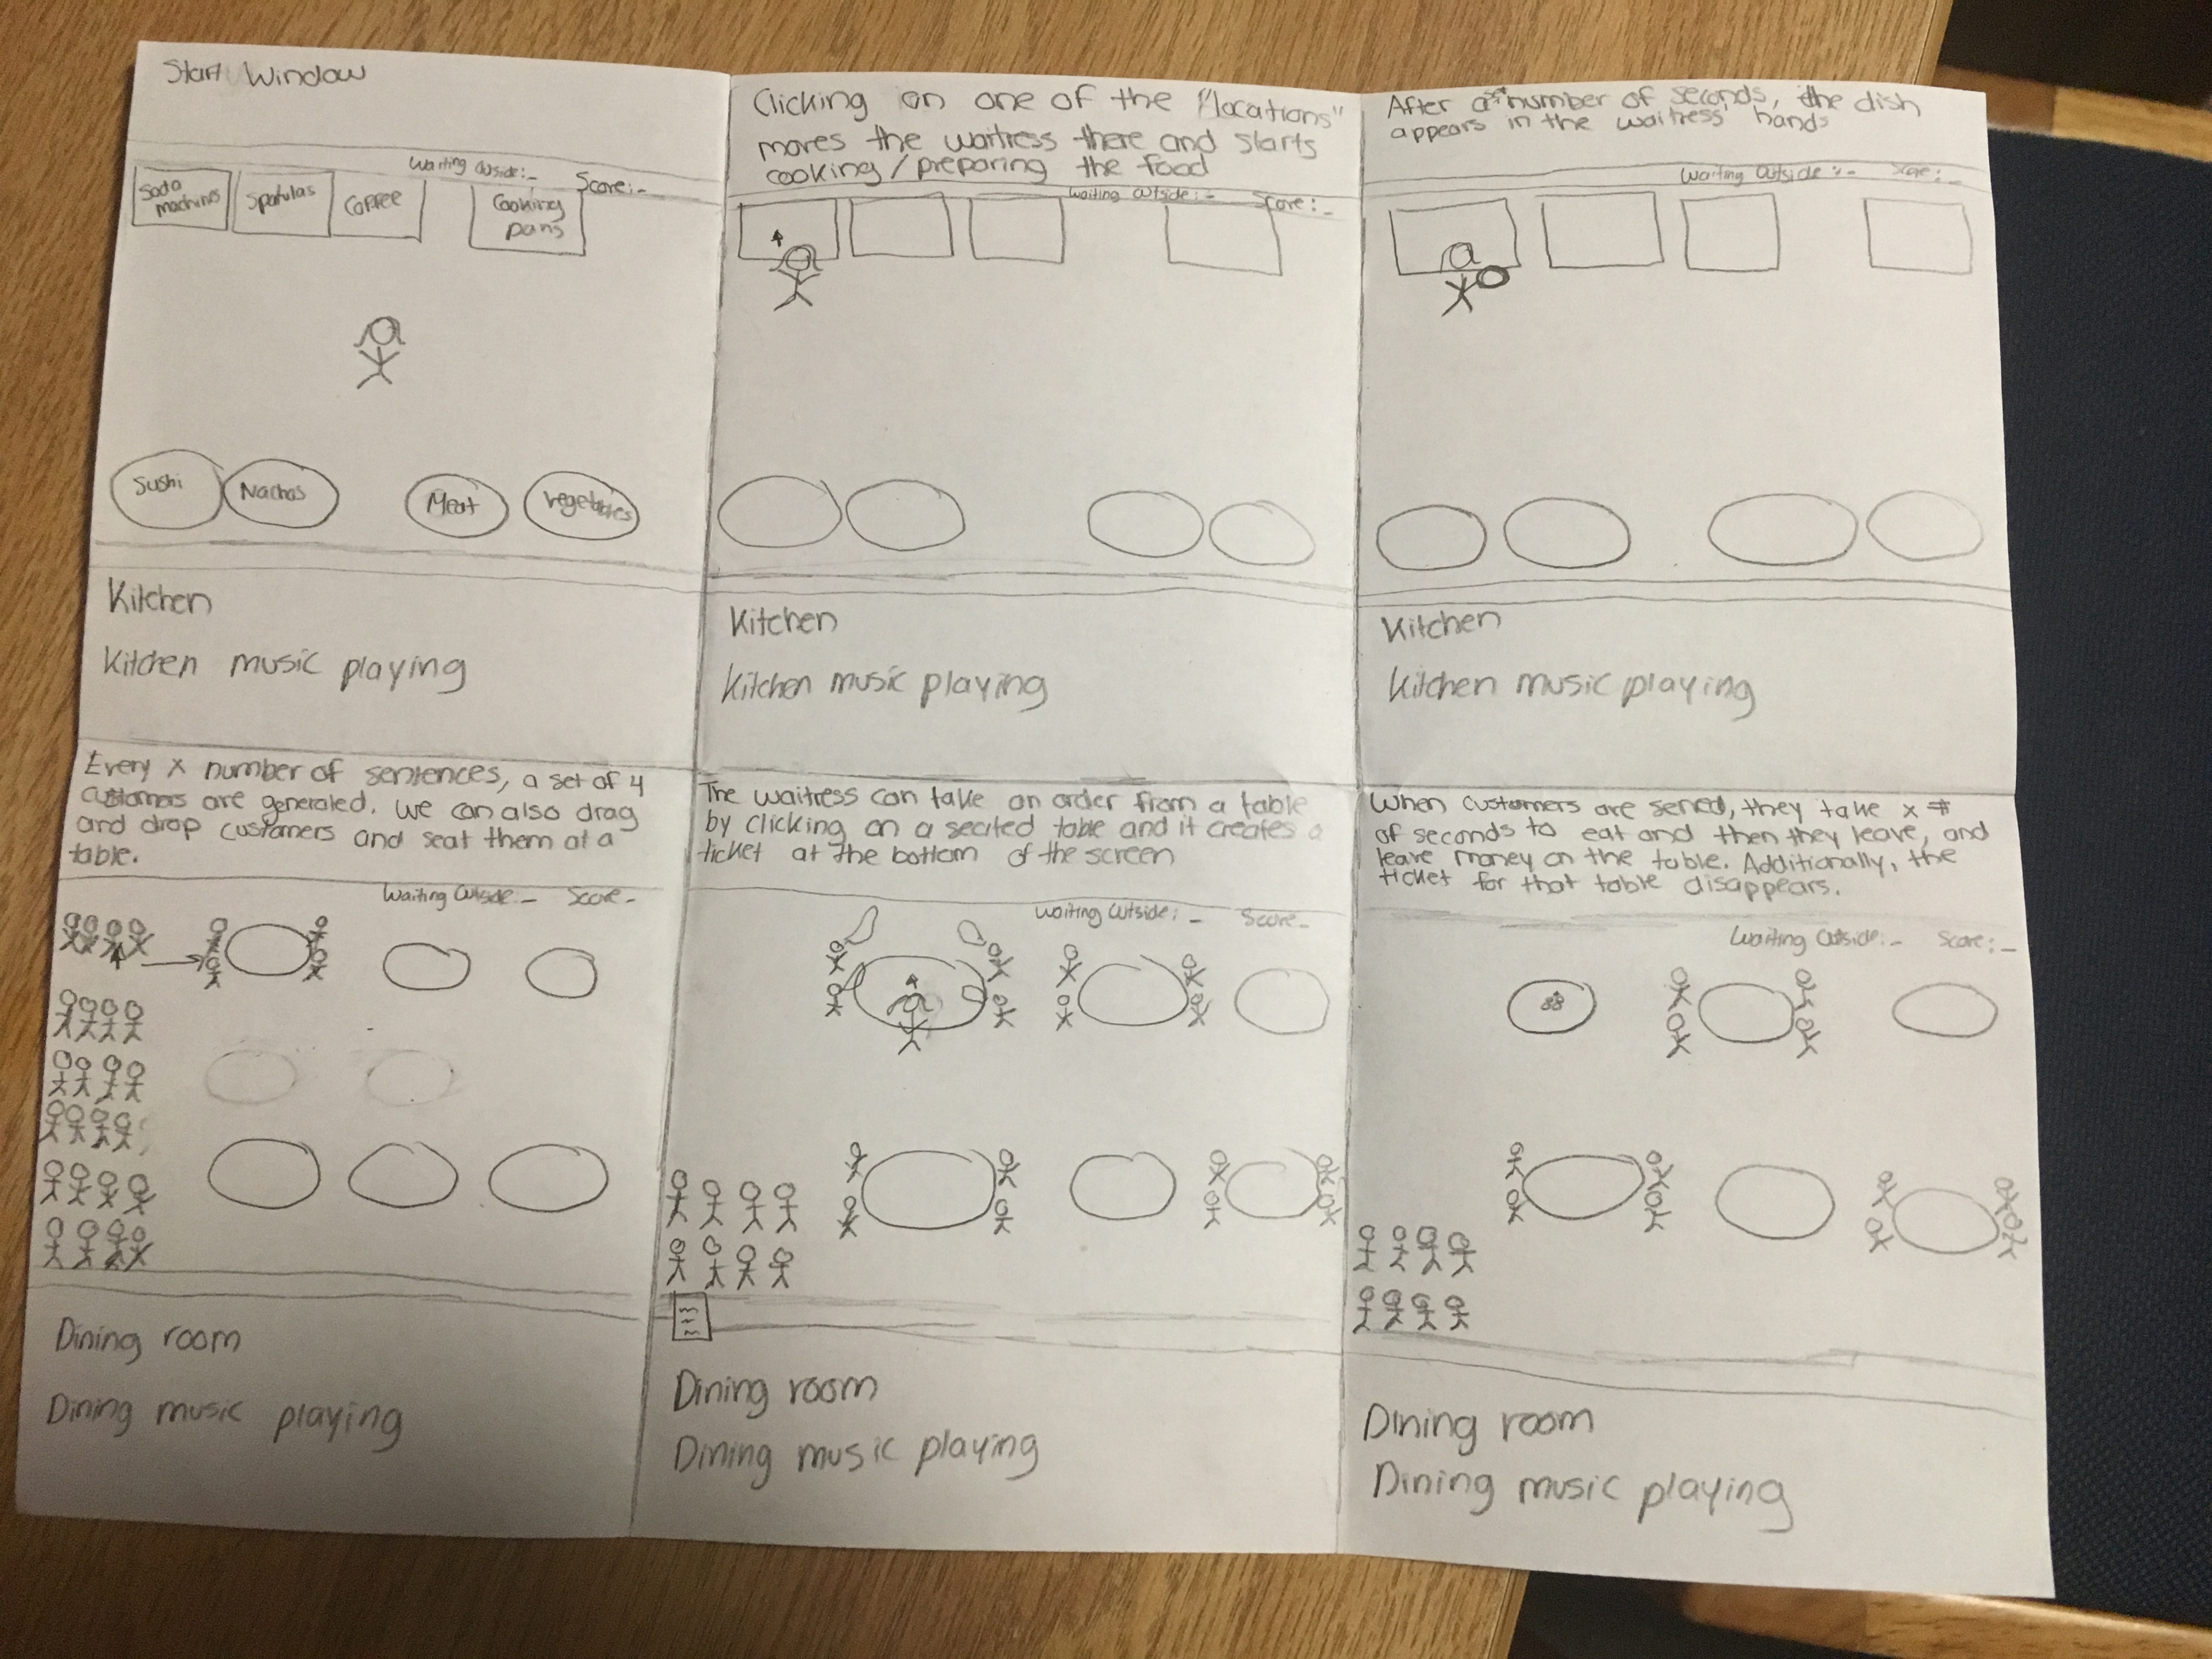 Start Window
Waiting Outside:_ Score:_
Soda machines
Spatulas
Coffee
Cooking pans
Sushi
Nachos
Meat
Vegetables
Kitchen
Kitchen music playing
Clicking on one of the "locations"
moves the waitress there and starts
cooking/preparing the food
Waiting Outside:_ Score:_
Kitchen
Kitchen music playing
After a x number of seconds, the dish
appears in the waitress' hands
Waiting Outside:_ Score:_
Kitchen
Kitchen music playing
Every x number of sentences, a set of 4
customers are generated. We can also drag
and drop customers and seat them at a
table.
Waiting Outside:_ Score_
Dining room
Dining music playing
The waitress can take an order from a table
by clicking on a seated table and it creates a
ticket at the bottom of the screen
Waiting Outside:_ Score_
Dining room
Dining music playing
When customers are served, they take x #
of seconds to eat and then they leave, and
leave money on the table. Additionally, the
ticket for that table disappears.
Waiting Outside:_ Score:_
Dining room
Dining music playing